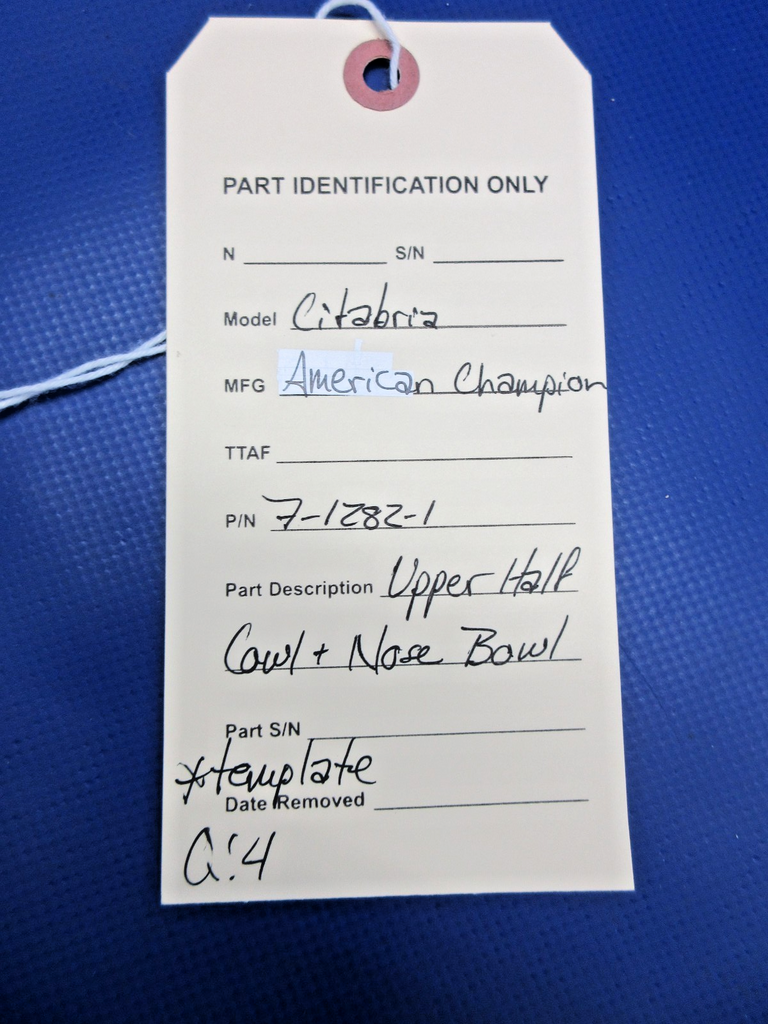 PART IDENTIFICATION ONLY
N S/N
Model Citabria
MFG American Champion
TTAF
P/N 7-1282-1
Part Description Upper Half
Cowl + Nose Bowl
Part S/N
*template
Date Removed
Q:4